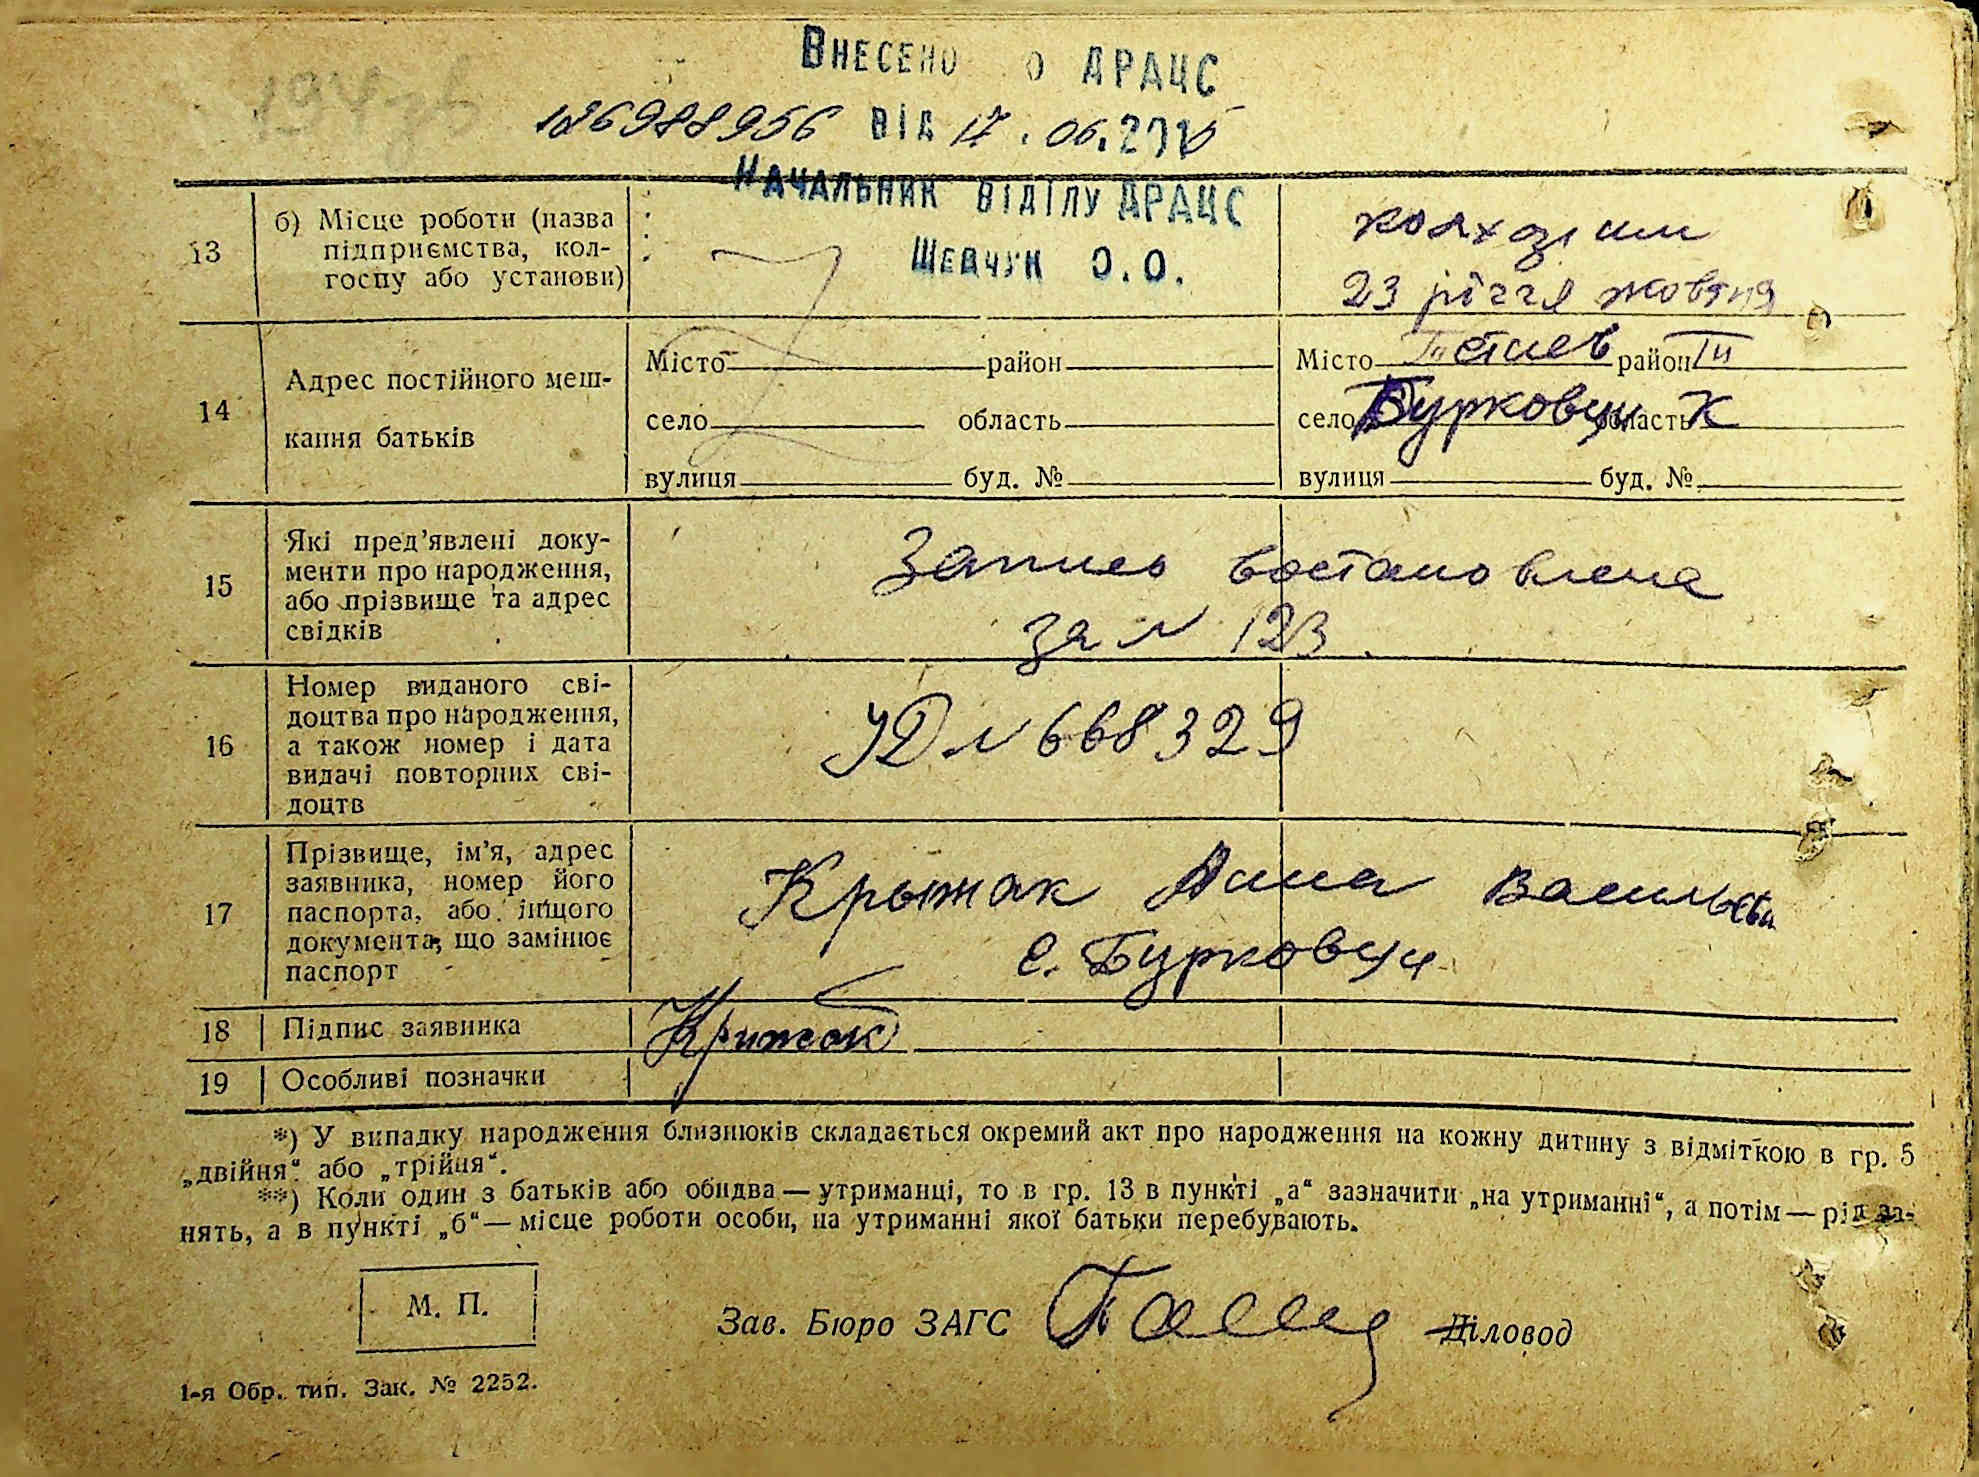 Внесено о ДРАЦС
126988956 від 17.06.2015
Начальник відділу ДРАЦС
Шевчук О.О.
13
б) Місце роботи (назва
підприємства, кол-
госпу або установи)
колхозу им
23 річчя жовтня
14
Адрес постійного меш-
кання батьків
Місто район
село область
вулиця буд. №
Місто Тетиев район Ти
село Бурковци область К
вулиця буд. №
15
Які пред’явлені доку-
менти про народження,
або прізвище та адрес
свідків
Запись востановлена
за N 123
16
Номер виданого сві-
доцтва про народження,
а також номер і дата
видачі повторних сві-
доцтв
УД N 668329
17
Прізвище, ім’я, адрес
заявника, номер його
паспорта, або іншого
документа, що замінює
паспорт
Крыжак Анна Васильевна
с. Бурковци
18 Підпис заявника
Крижак
19 Особливі позначки
*) У випадку народження близнюків складається окремий акт про народження на кожну дитину з відміткою в гр. 5
„двійня“ або „трійня“.
**) Коли один з батьків або обидва — утриманці, то в гр. 13 в пункті „а“ зазначити „на утриманні“, а потім — рід за-
нять, а в пункті „б“ — місце роботи особи, на утриманні якої батьки перебувають.
М. П.
Зав. Бюро ЗАГС Діловод
1-я Обр. тип. Зак. № 2252.